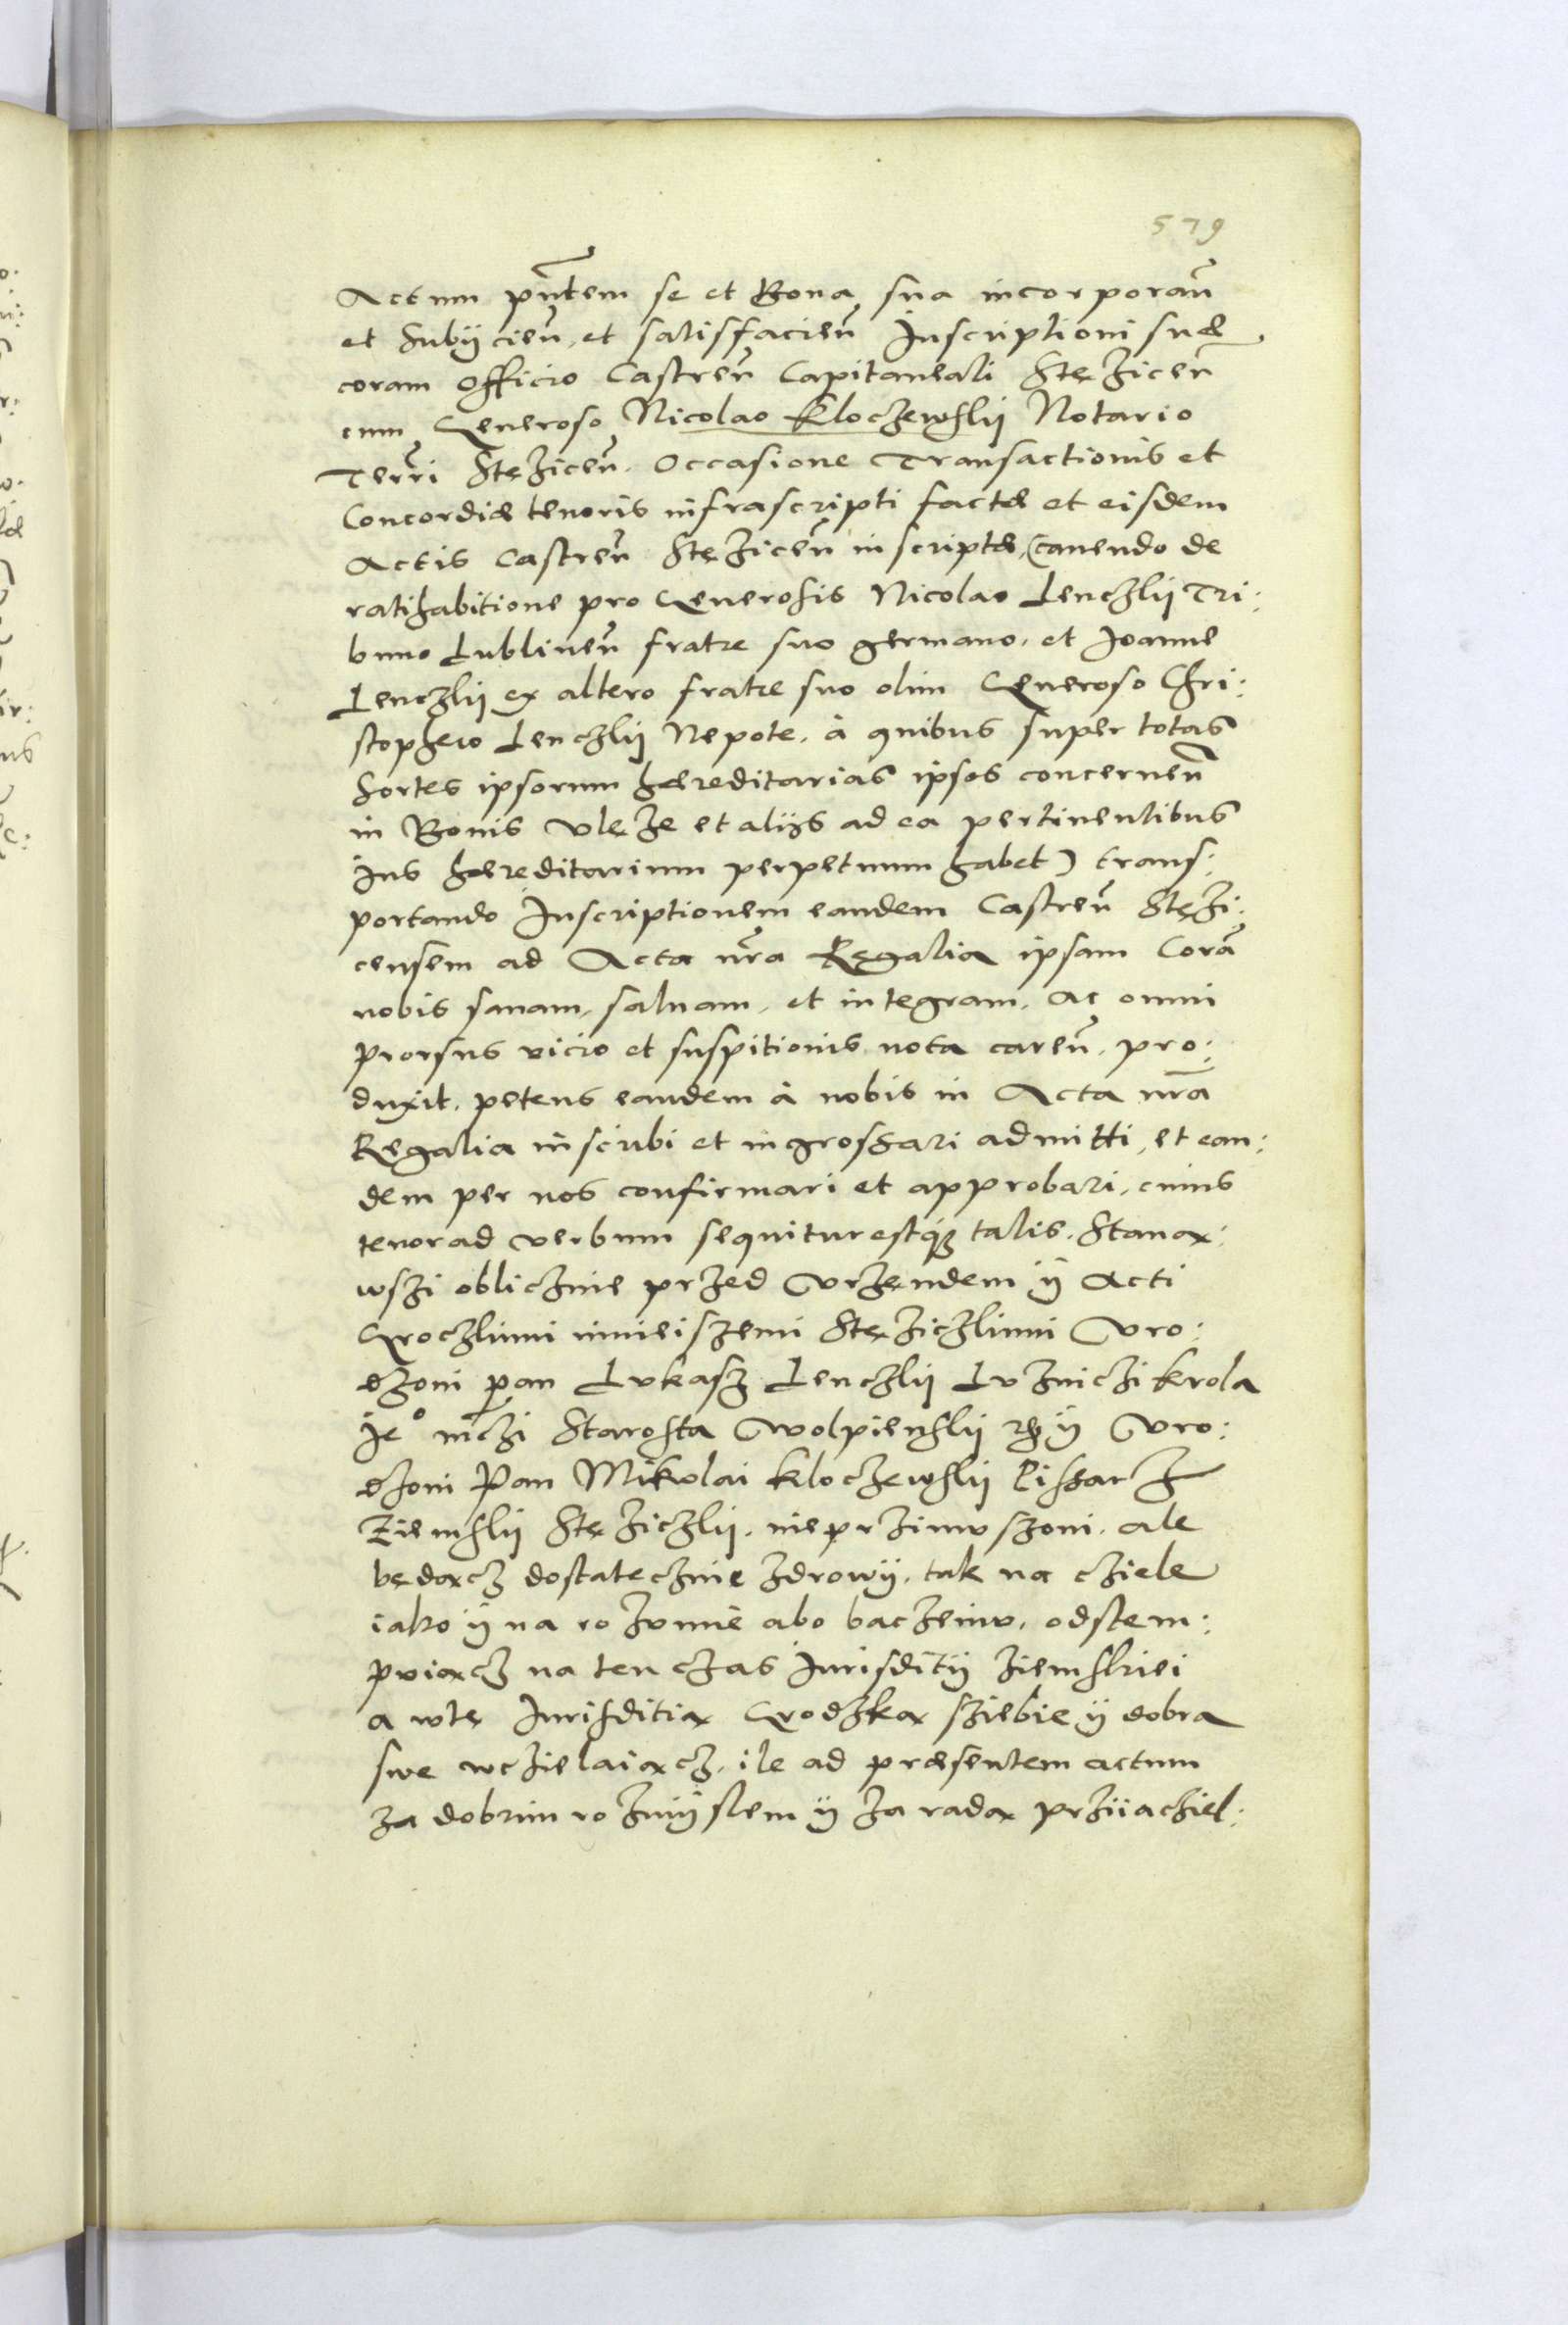 579
Actum pñtem se et Bona sua incorporañ
et subijcieñ, et satisfacieñ Inscriptioni suæ
coram Officio Castreñ Capitaneali Stężiceñ
cum Generoso Nicolao Kloczewskij Notario
Terrī Stężiceñ. Occasione Transactionis et
Concordiæ tenoris infrascripti factæ et eisdem
Actis Castreñ Stężiceñ inscriptæ, (cauendo de
ratihabitione pro Generosis Nicolao Lenczkij Tri:
buno Lublineñ fratre suo germano, et Joanne
Lenczkij ex altero fratre suo olim Generoso Chri:
stophero Lenczkij Nepote, à quibus super totas
sortes ipsorum hæreditarias ipsos concerneñ
in Bonis Vlęże et alijs ad ea pertinentibus
Jus hæreditarium perpetuum habet) trans:
portando Inscriptionem eandem Castreñ Stężi:
censem ad Acta nr̃a Regalia ipsam Corã
nobis sanam, saluam, et integram, ac omni
prorsus vicio et suspitionis nota careñ, pro:
duxit, petens eandem à nobis in Acta nr̃a
Regalia inscribi et ingrossari admitti, et ean:
dem per nos confirmari et approbari, cuius
tenor ad verbum sequitur estq́ talis. Stanąw:
wszi oblicznie przed Vrzendem ÿ Acti
Groczkimi ninieiszemi Stężiczkimi Vro:
dzoni pan Lukasz Lenczkij Luzniczi krola
Je° mczi Starosta Wolpienskij ꝛc ÿ Vro:
dzoni Pan Mikolai Kloczewskij Pissarz
Ziemskij Stężiczkij, nieprzimuszoni, ale
będącz dostatecznie zdrowÿ, tak na cziele
iako ÿ na rozumie abo baczeniu, odstem:
puiącz na ten czas Jurisditÿ ziemskiei
a wtę Jurisditią Grodzką sziebie ÿ dobra
swe wczielaiącz, ile ad præsentem actum
za dobrim rozmÿslem ÿ za radą prziiacziel: